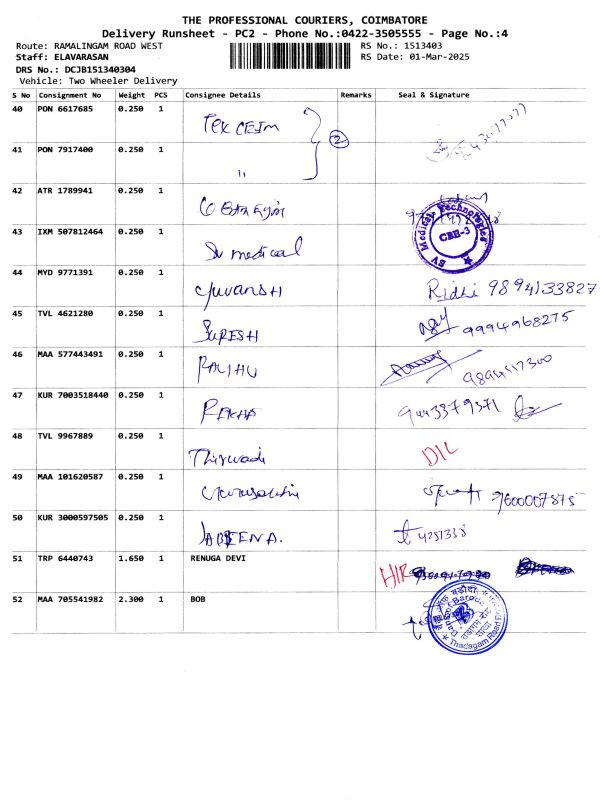 THE PROFESSIONAL COURIERS, COIMBATORE
Delivery Runsheet - PC2 - Phone No.:0422-3505555 - Page No.:4
Route: RAMALINGAM ROAD WEST RS No.: 1513403
Staff: ELAVARASAN RS Date: 01-Mar-2025
DRS No.: DCJB151340304
Vehicle: Two Wheeler Delivery
S No Consignment No Weight PCS Consignee Details Remarks Seal & Signature
40 PON 6617685 0.250 1
2
41 PON 7917400 0.250 1 "
42 ATR 1789941 0.250 1
43 IXM 507812464 0.250 1 SV medical SV Medical Technologies CBE-3
44 MYD 9771391 0.250 1 Yuvansh Ridhi 9894133827
45 TVL 4621280 0.250 1 SURESH 9994968275
46 MAA 577443491 0.250 1
47 KUR 7003518440 0.250 1 9443379371
48 TVL 9967889 0.250 1 D/L
49 MAA 101620587 0.250 1 9600007875
50 KUR 3000597505 0.250 1 4251338
51 TRP 6440743 1.650 1 RENUGA DEVI
52 MAA 705541982 2.300 1 BOB Thadagam Road